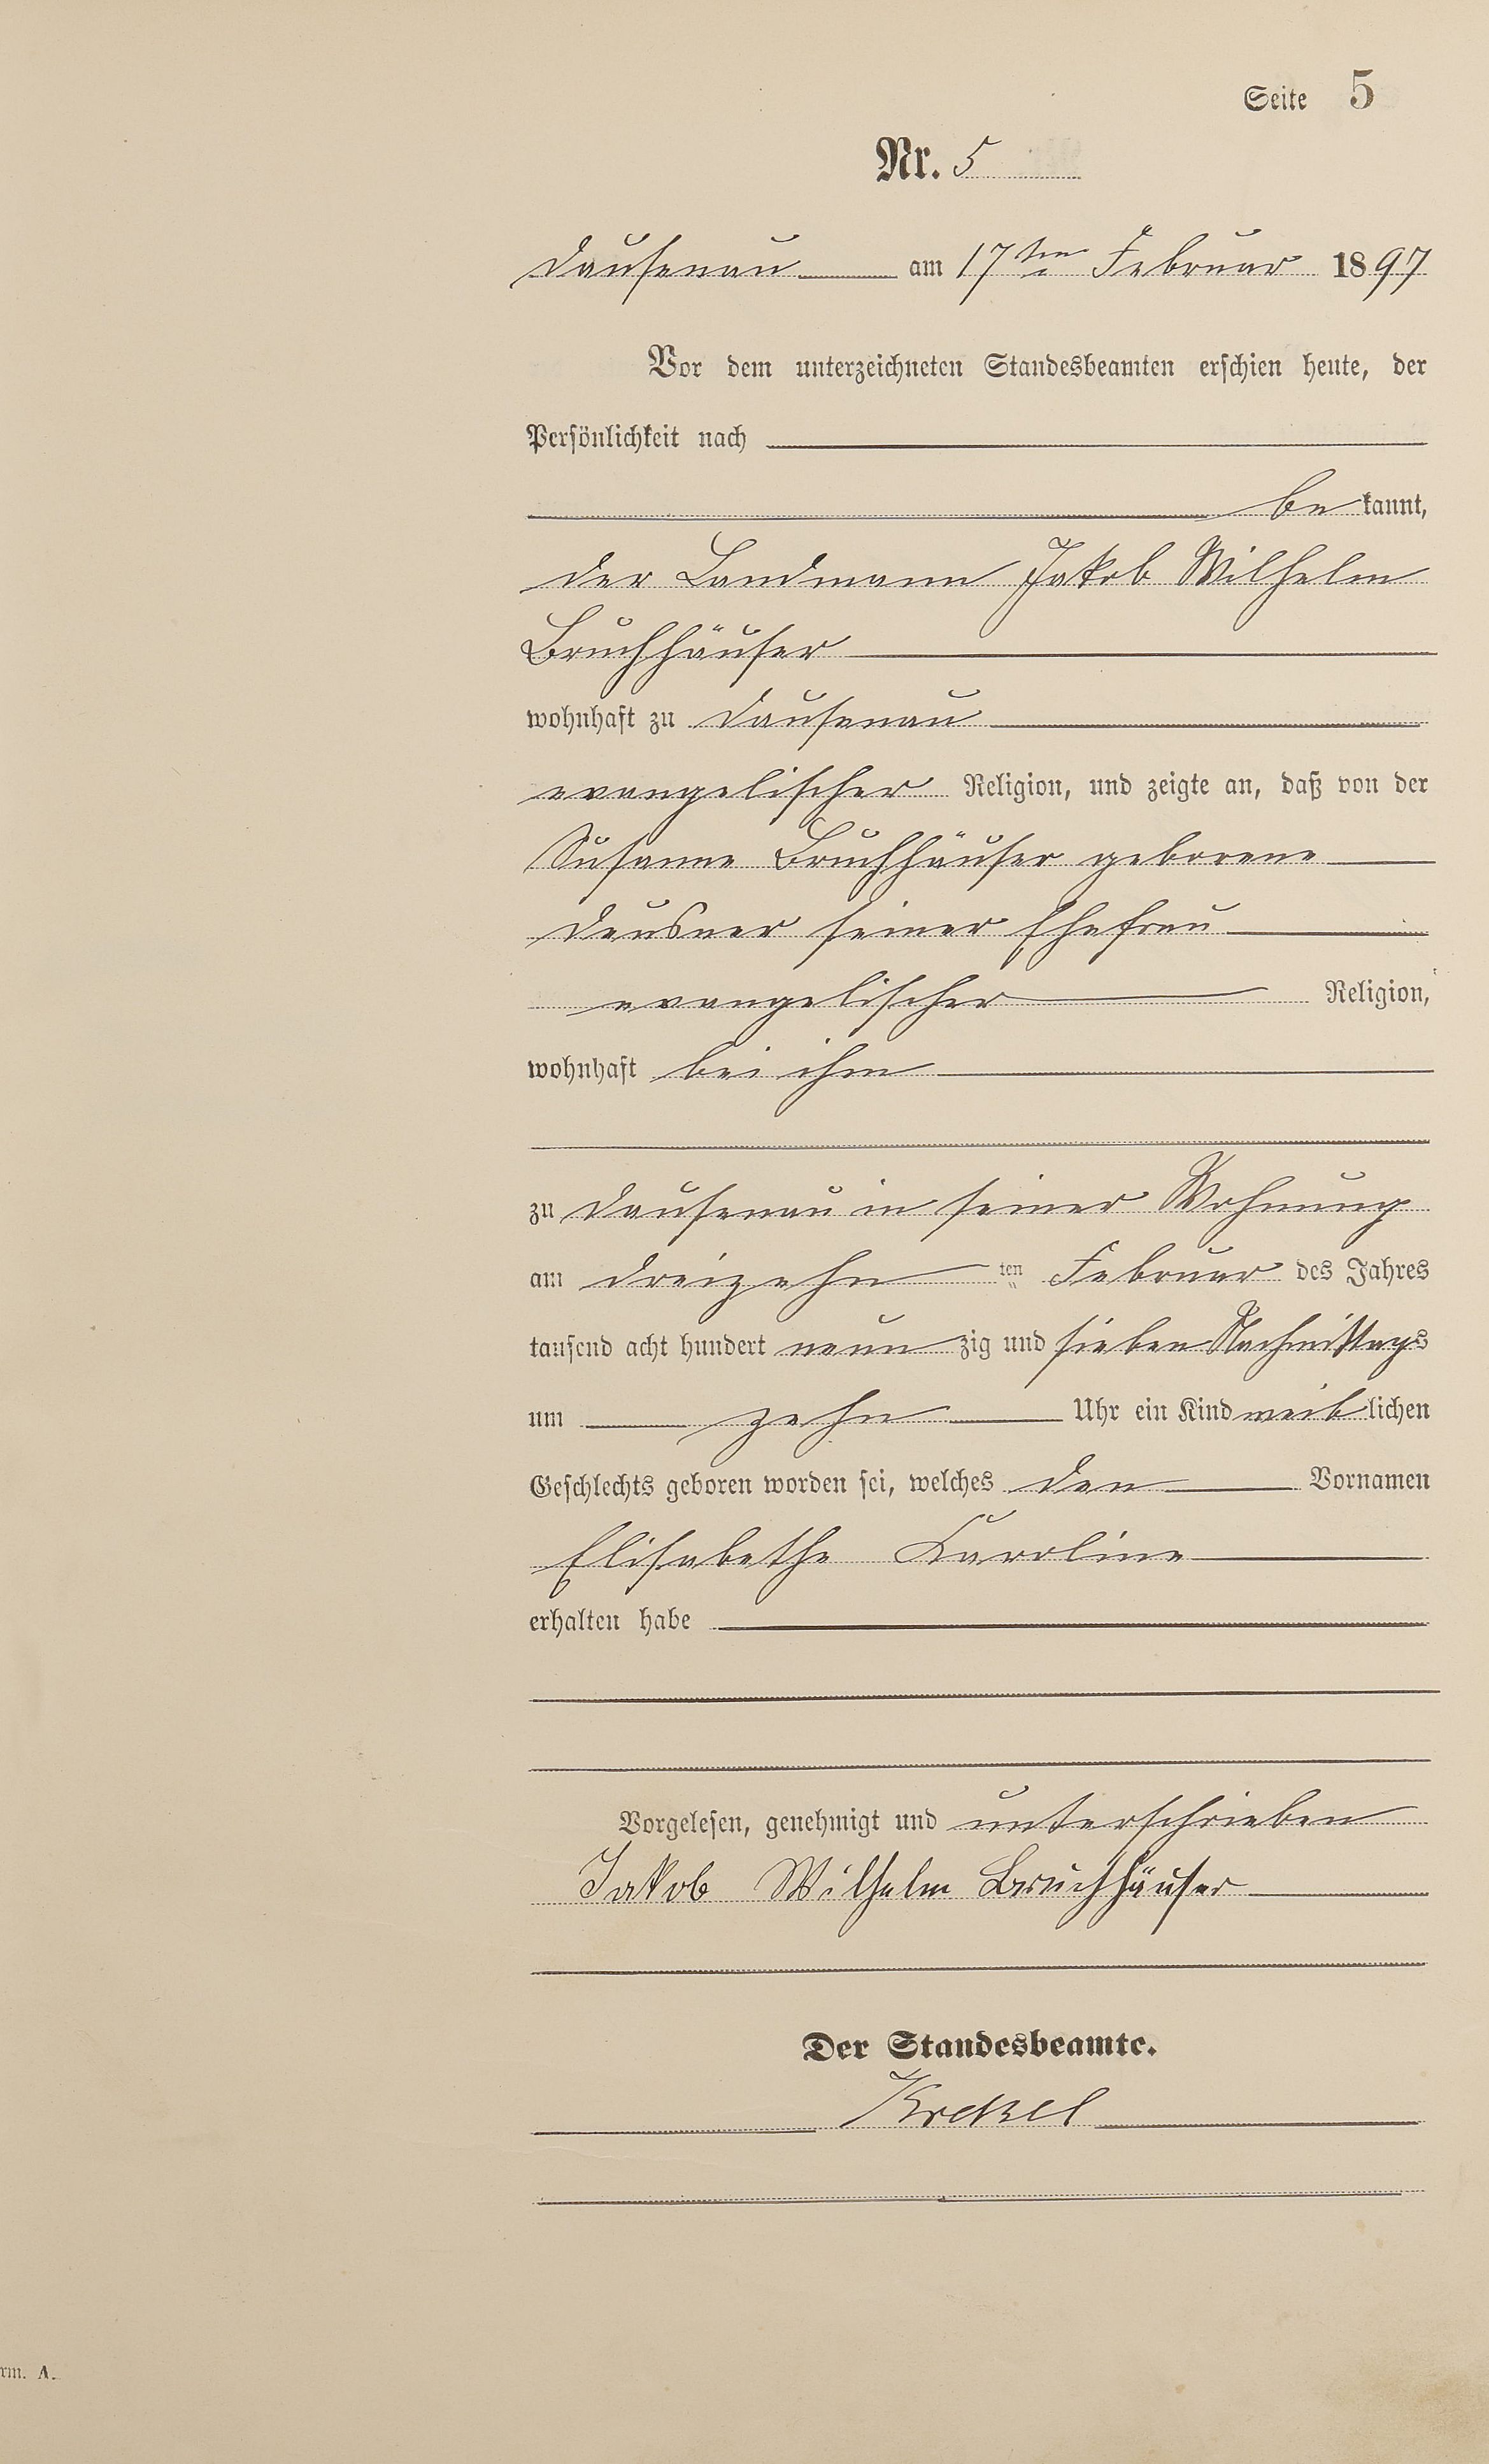 Seite 5
Nr. 5
Dausenau am 17ten Februar 1897
Vor dem unterzeichneten Standesbeamten erschien heute, der
Persönlichkeit nach
bekannt,
der Landmann Jakob Wilhelm
Bruchhäuser
wohnhaft zu Dausenau
evangelischer Religion, und zeigte an, daß von der
Susanne Bruchhäuser geborene
Deusner seiner Ehefrau
evangelischer Religion,
wohnhaft bei ihm
zu Dausenau in seiner Wohnung
am dreizehn ten Februar des Jahres
tausend acht hundert neunzig und sieben Nachmittags
um zehn Uhr ein Kind weiblichen
Geschlechts geboren worden sei, welches den Vornamen
Elisabethe Karoline
erhalten habe
Vorgelesen, genehmigt und unterschrieben
Jakob Wilhelm Bruchhäuser
Der Standesbeamte.
Krekel
rm. A.